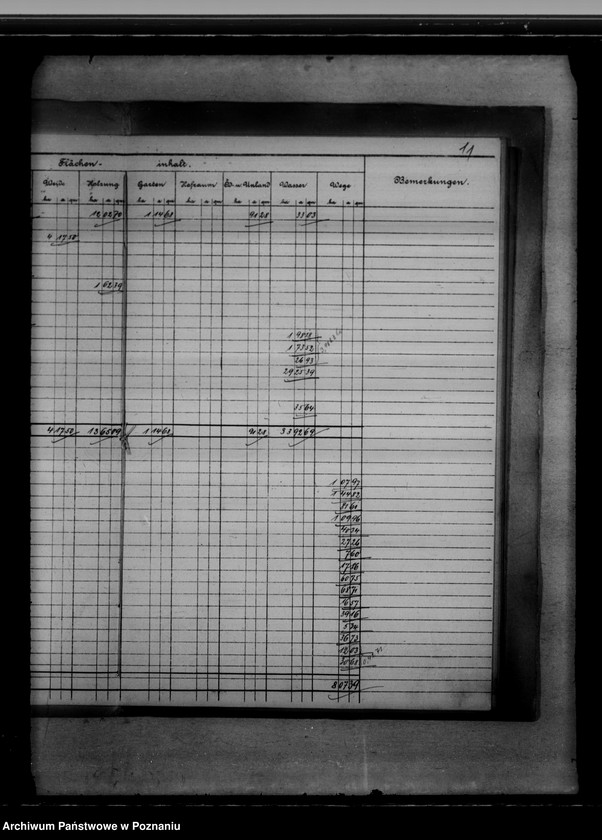 11
Flächen- inhalt.
Weide Holzung Garten Hofraum Wasser Wege Bemerkungen.
ha a qm ha a qm ha a qm ha a qm ha a qm ha a qm ha a qm
12 02 70 1 14 68 91 28 33 03
4 17 50
1 62 39
1 98 28
1 73 52
26 93
29 25 39
35 64
4 17 50 13 65 09 1 14 68 91 28 33 92 69
1 07 97
1 44 52
81 61
1 09 96
27 26
7 60
17 56
60 75
39 16
5 34
36 73
12 03
30 63
8 07 39
Archiwum Państwowe w Poznaniu